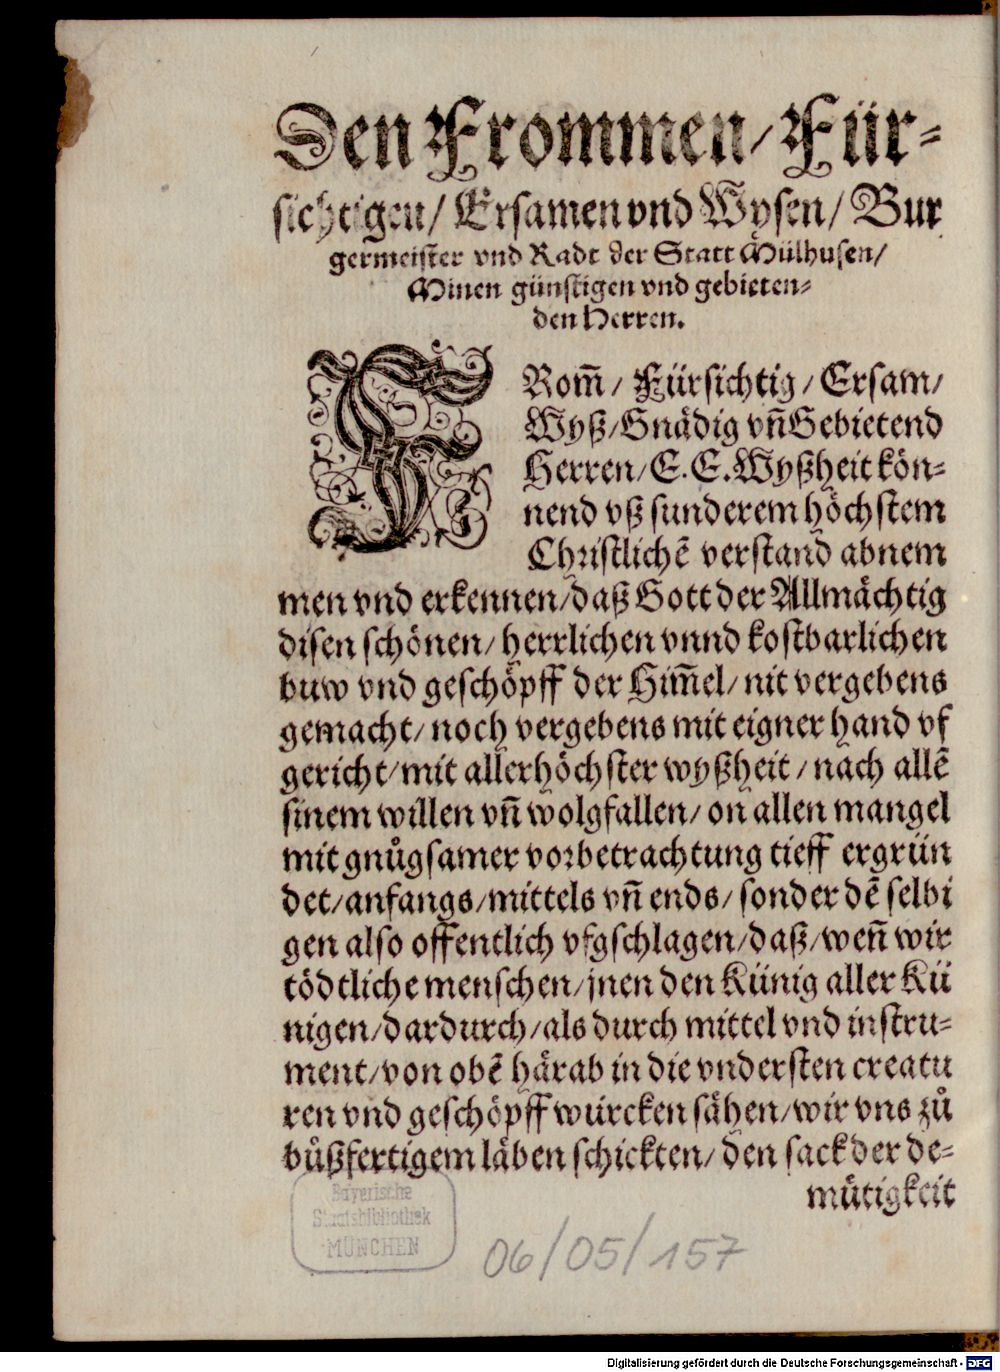 Den Frommen/ Für-
sichtigen/ Ersamen vnd Wysen/ Bur
germeister vnd Radt der Statt Mülhusen/
Minen günstigen vnd gebieten-
den Herren.
FRom̃/ Fürsichtig/ Ersam/
Wyß/ Gnädig vñ Gebietend
Herren/ E. E. Wyßheit kön-
nend vß sunderem höchstem
Christlichẽ verstand abnem
men vnd erkennen/ daß Gott der Allmächtig
disen schönen/ herrlichen vnnd kostbarlichen
buw vnd geschöpff der Him̃el/ nit vergebens
gemacht/ noch vergebens mit eigner hand vf
gericht/ mit allerhöchster wyßheit/ nach allẽ
sinem willen vñ wolgfallen/ on allen mangel
mit gnůgsamer vorbetrachtung tieff ergrün
det/ anfangs/ mittels vñ ends/ sonder dẽ selbi
gen also offentlich vfgschlagen/ daß/ weñ wir
tödtliche menschen/ jnen den Künig aller Kü
nigen/ dardurch/ als durch mittel vnd instru-
ment/ von obẽ härab in die vndersten creatu
ren vnd geschöpff würcken sähen/ wir vns zů
bůßfertigem läben schickten/ den sack der de-
mütigkeit
Bayerische
Staatsbibliothek
MÜNCHEN
06/05/157
Digitalisierung gefördert durch die Deutsche Forschungsgemeinschaft - DFG